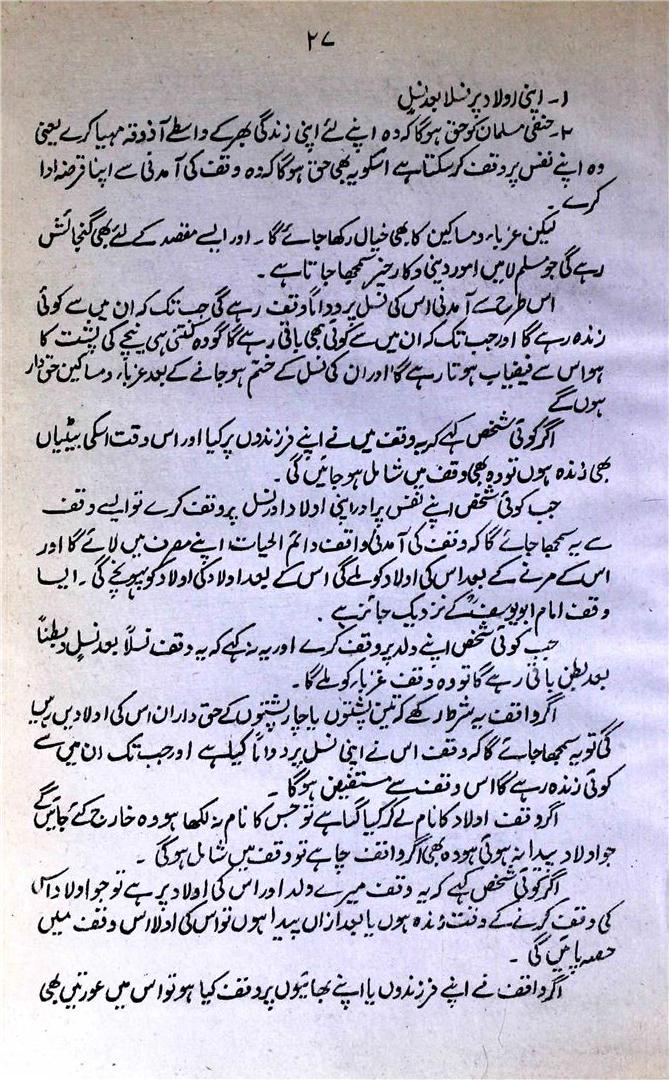 ۲۷
۱۔ اپنی اولاد پر نسلاً بعد نسلٍ
۲۔ حنفی مسلمان کو حق ہوگا کہ وہ اپنے لئے اپنی زندگی بھر کے واسطے آذوقہ مہیا کرے یعنی
وہ اپنے نفس پر وقف کرسکتا ہے اسکو یہ بھی حق ہوگا کہ وہ وقف کی آمدنی سے اپنا قرضہ ادا
کرے۔
لیکن غرباء و مساکین کا بھی خیال رکھا جائے گا۔ اور ایسے مقصد کے لئے بھی گنجائش
رہے گی جو مسلم لا میں امور دینی و کار خیر سمجھا جاتا ہے۔
اس طرح سے آمدنی اس کی نسل پر دواماً وقف رہے گی جب تک کہ ان میں سے کوئی
زندہ رہے گا اور جب تک کہ ان میں سے کوئی بھی باقی رہے گا گو وہ کتنی ہی نیچے کی پشت کا
ہو اس سے فیضیاب ہوتا رہے گا اور ان کی نسل کے ختم ہو جانے کے بعد غرباء و مساکین حق دار
ہوں گے
اگر کوئی شخص کہے کہ یہ وقف میں نے اپنے فرزندوں پر کیا اور اس وقت اسکی بیٹیاں
بھی زندہ ہوں تو وہ بھی وقف میں شامل ہو جائیں گی۔
جب کوئی شخص اپنے نفس پر اور اپنی اولاد اور نسل پر وقف کرے تو ایسے وقف
سے یہ سمجھا جائے گا کہ وقف کی آمدنی واقف دائم الحیات اپنے مصرف میں لائے گا اور
اس کے مرنے کے بعد اس کی اولاد کو ملے گی اس کے بعد اولاد کی اولاد کو پہونچے گی۔ ایسا
وقف امام ابو یوسفؒ کے نزدیک جائز ہے۔
جب کوئی شخص اپنے ولد پر وقف کرے اور یہ نہ کہے کہ یہ وقف نسلاً بعد نسلٍ و بطناً
بعد بطن باقی رہے گا تو وہ وقف غرباء کو ملے گا۔
اگر واقف یہ شرط رکھے کہ تین پشتوں یا چار پشتوں کے حق داران اس کی اولاد میں رہیں
گی تو یہ سمجھا جائے گا کہ وقف اس نے اپنی نسل پر دواماً کیا ہے اور جب تک ان میں سے
کوئی زندہ رہے گا اس وقف سے مستفیض ہوگا۔
اگر وقف اولاد کا نام لے کر کیا گیا ہے تو جس کا نام نہ لکھا ہو وہ خارج کئے جائیں گے
جو اولاد پیدا نہ ہوئی ہو وہ بھی اگر واقف چاہے تو وقف میں شامل ہوگی۔
اگر کوئی شخص کہے کہ یہ وقف میرے ولد اور اس کی اولاد پر ہے تو جو اولاد اس
کی وقف کرنے کے وقت زندہ ہوں یا بعد ازاں پیدا ہوں تو اس کی اولاد اس وقف میں
حصہ پائیں گی۔
اگر واقف نے اپنے فرزندوں یا اپنے بھائیوں پر وقف کیا ہو تو اس میں عورتیں بھی